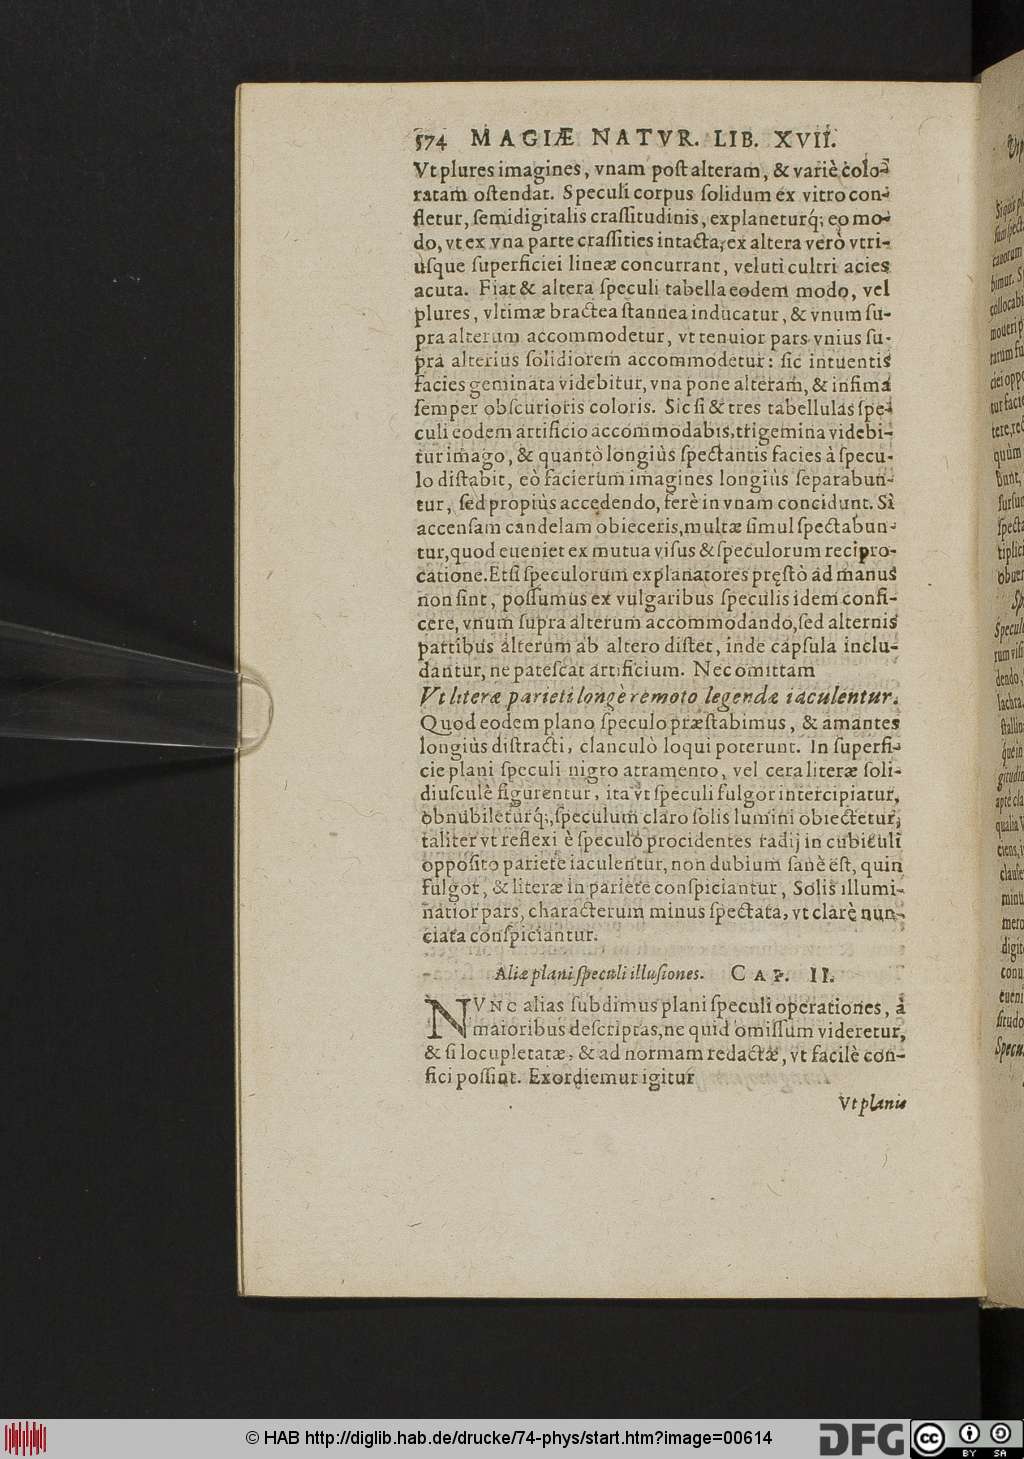 574 MAGIÆ NATVR. LIB. XVII.
Vt plures imagines, vnam poſt alteram, & variè colo-
ratam oſtendat. Speculi corpus ſolidum ex vitro con-
fletur, ſemidigitalis craſſitudinis, explaneturq́; eo mo-
do, vt ex vna parte craſſities intacta, ex altera verò vtri-
uſque ſuperficiei lineæ concurrant, veluti cultri acies
acuta. Fiat & altera ſpeculi tabella eodem modo, vel
plures, vltimæ bractea ſtannea inducatur, & vnum ſu-
pra alterum accommodetur, vt tenuior pars vnius ſu-
pra alterius ſolidiorem accommodetur: ſic intuentis
facies geminata videbitur, vna pone alteram, & infima
ſemper obſcurioris coloris. Sic ſi & tres tabellulas ſpe-
culi eodem artificio accommodabis, trigemina videbi-
tur imago, & quantò longiùs ſpectantis facies à ſpecu-
lo diſtabit, eò facierum imagines longiùs ſeparabun-
tur, ſed propiùs accedendo, ferè in vnam concidunt. Si
accenſam candelam obieceris, multæ ſimul ſpectabun-
tur, quod eueniet ex mutua viſus & ſpeculorum recipro-
catione. Etſi ſpeculorum explanatores pręſtò ad manus
non ſint, poſſumus ex vulgaribus ſpeculis idem confi-
cere, vnum ſupra alterum accommodando, ſed alternis
partibus alterum ab altero diſtet, inde capſula inclu-
dantur, ne pateſcat artificium. Nec omittam
Vt literæ parieti longè remoto legendæ iaculentur.
Quod eodem plano ſpeculo præſtabimus, & amantes
longiùs diſtracti, clanculò loqui poterunt. In ſuperfi-
cie plani ſpeculi nigro atramento, vel cera literæ ſoli-
diuſculè figurentur, ita vt ſpeculi fulgor intercipiatur,
obnubileturq́;, ſpeculum claro ſolis lumini obiectetur,
taliter vt reflexi è ſpeculo procidentes radij in cubiculi
oppoſito pariete iaculentur, non dubium ſanè eſt, quin
fulgor, & literæ in pariete conſpiciantur, Solis illumi-
natior pars, characterum minus ſpectata, vt clarè nun-
ciata conſpiciantur.
Aliæ plani ſpeculi illuſiones. CAP. II.
NVNC alias ſubdimus plani ſpeculi operationes, à
maioribus deſcriptas, ne quid omiſſum videretur,
& ſi locupletatæ, & ad normam redactæ, vt facilè con-
fici poſſint. Exordiemur igitur
Vt planis
© HAB http://diglib.hab.de/drucke/74-phys/start.htm?image=00614
DFG
cc BY SA